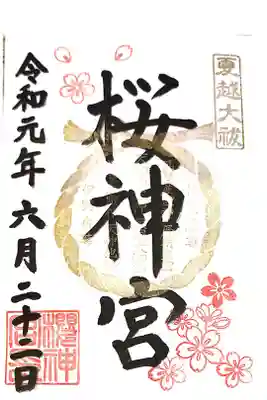 夏越大祓
桜神宮
令和元年六月二十二日
櫻神宮